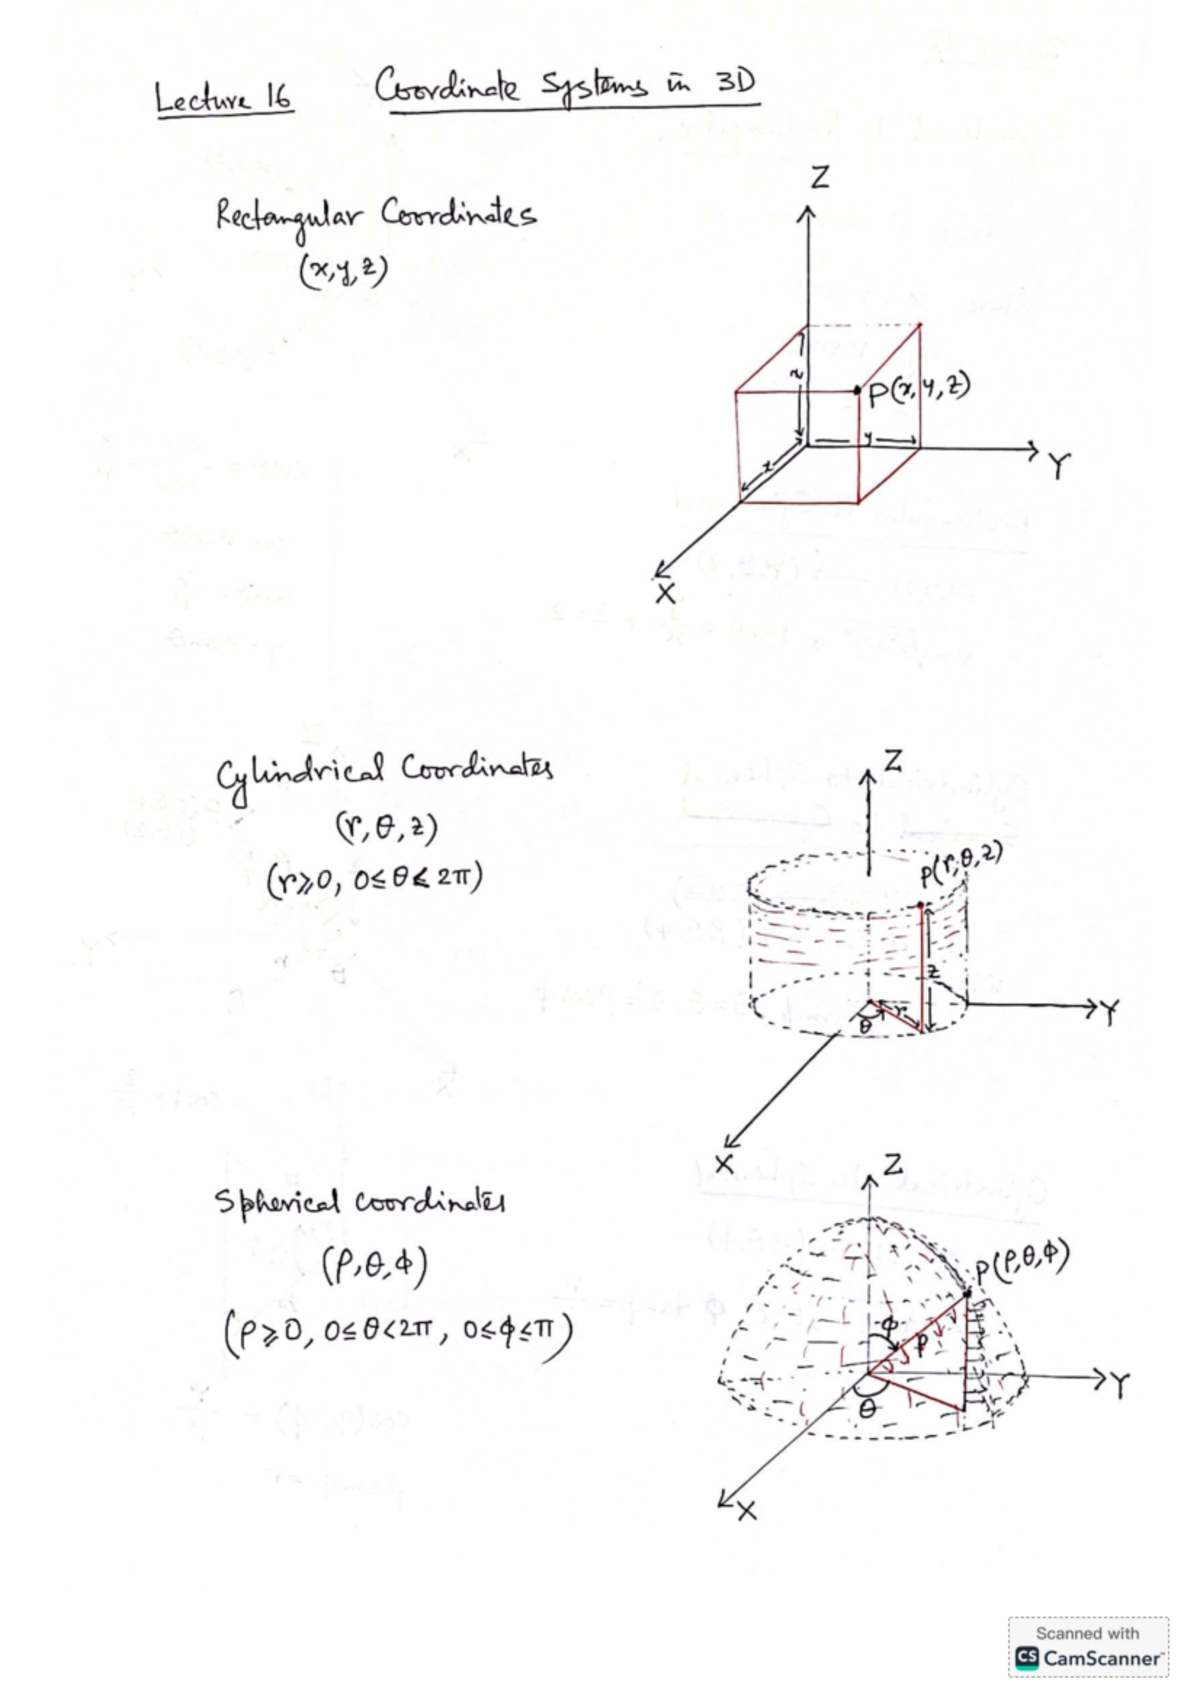 Lecture 16 Coordinate Systems in 3D
Rectangular Coordinates
(x,y,z)
Z
z
P(x,y,z)
y
x
Y
X
Cylindrical Coordinates
(r,θ,z)
(r⩾0, 0≤θ⩽2π)
Z
P(r,θ,z)
z
r
θ
Y
X
Spherical coordinates
(ρ,θ,ϕ)
(ρ⩾0, 0≤θ<2π, 0≤ϕ≤π)
Z
P(ρ,θ,ϕ)
ϕ
ρ
θ
Y
X
Scanned with
CS CamScanner